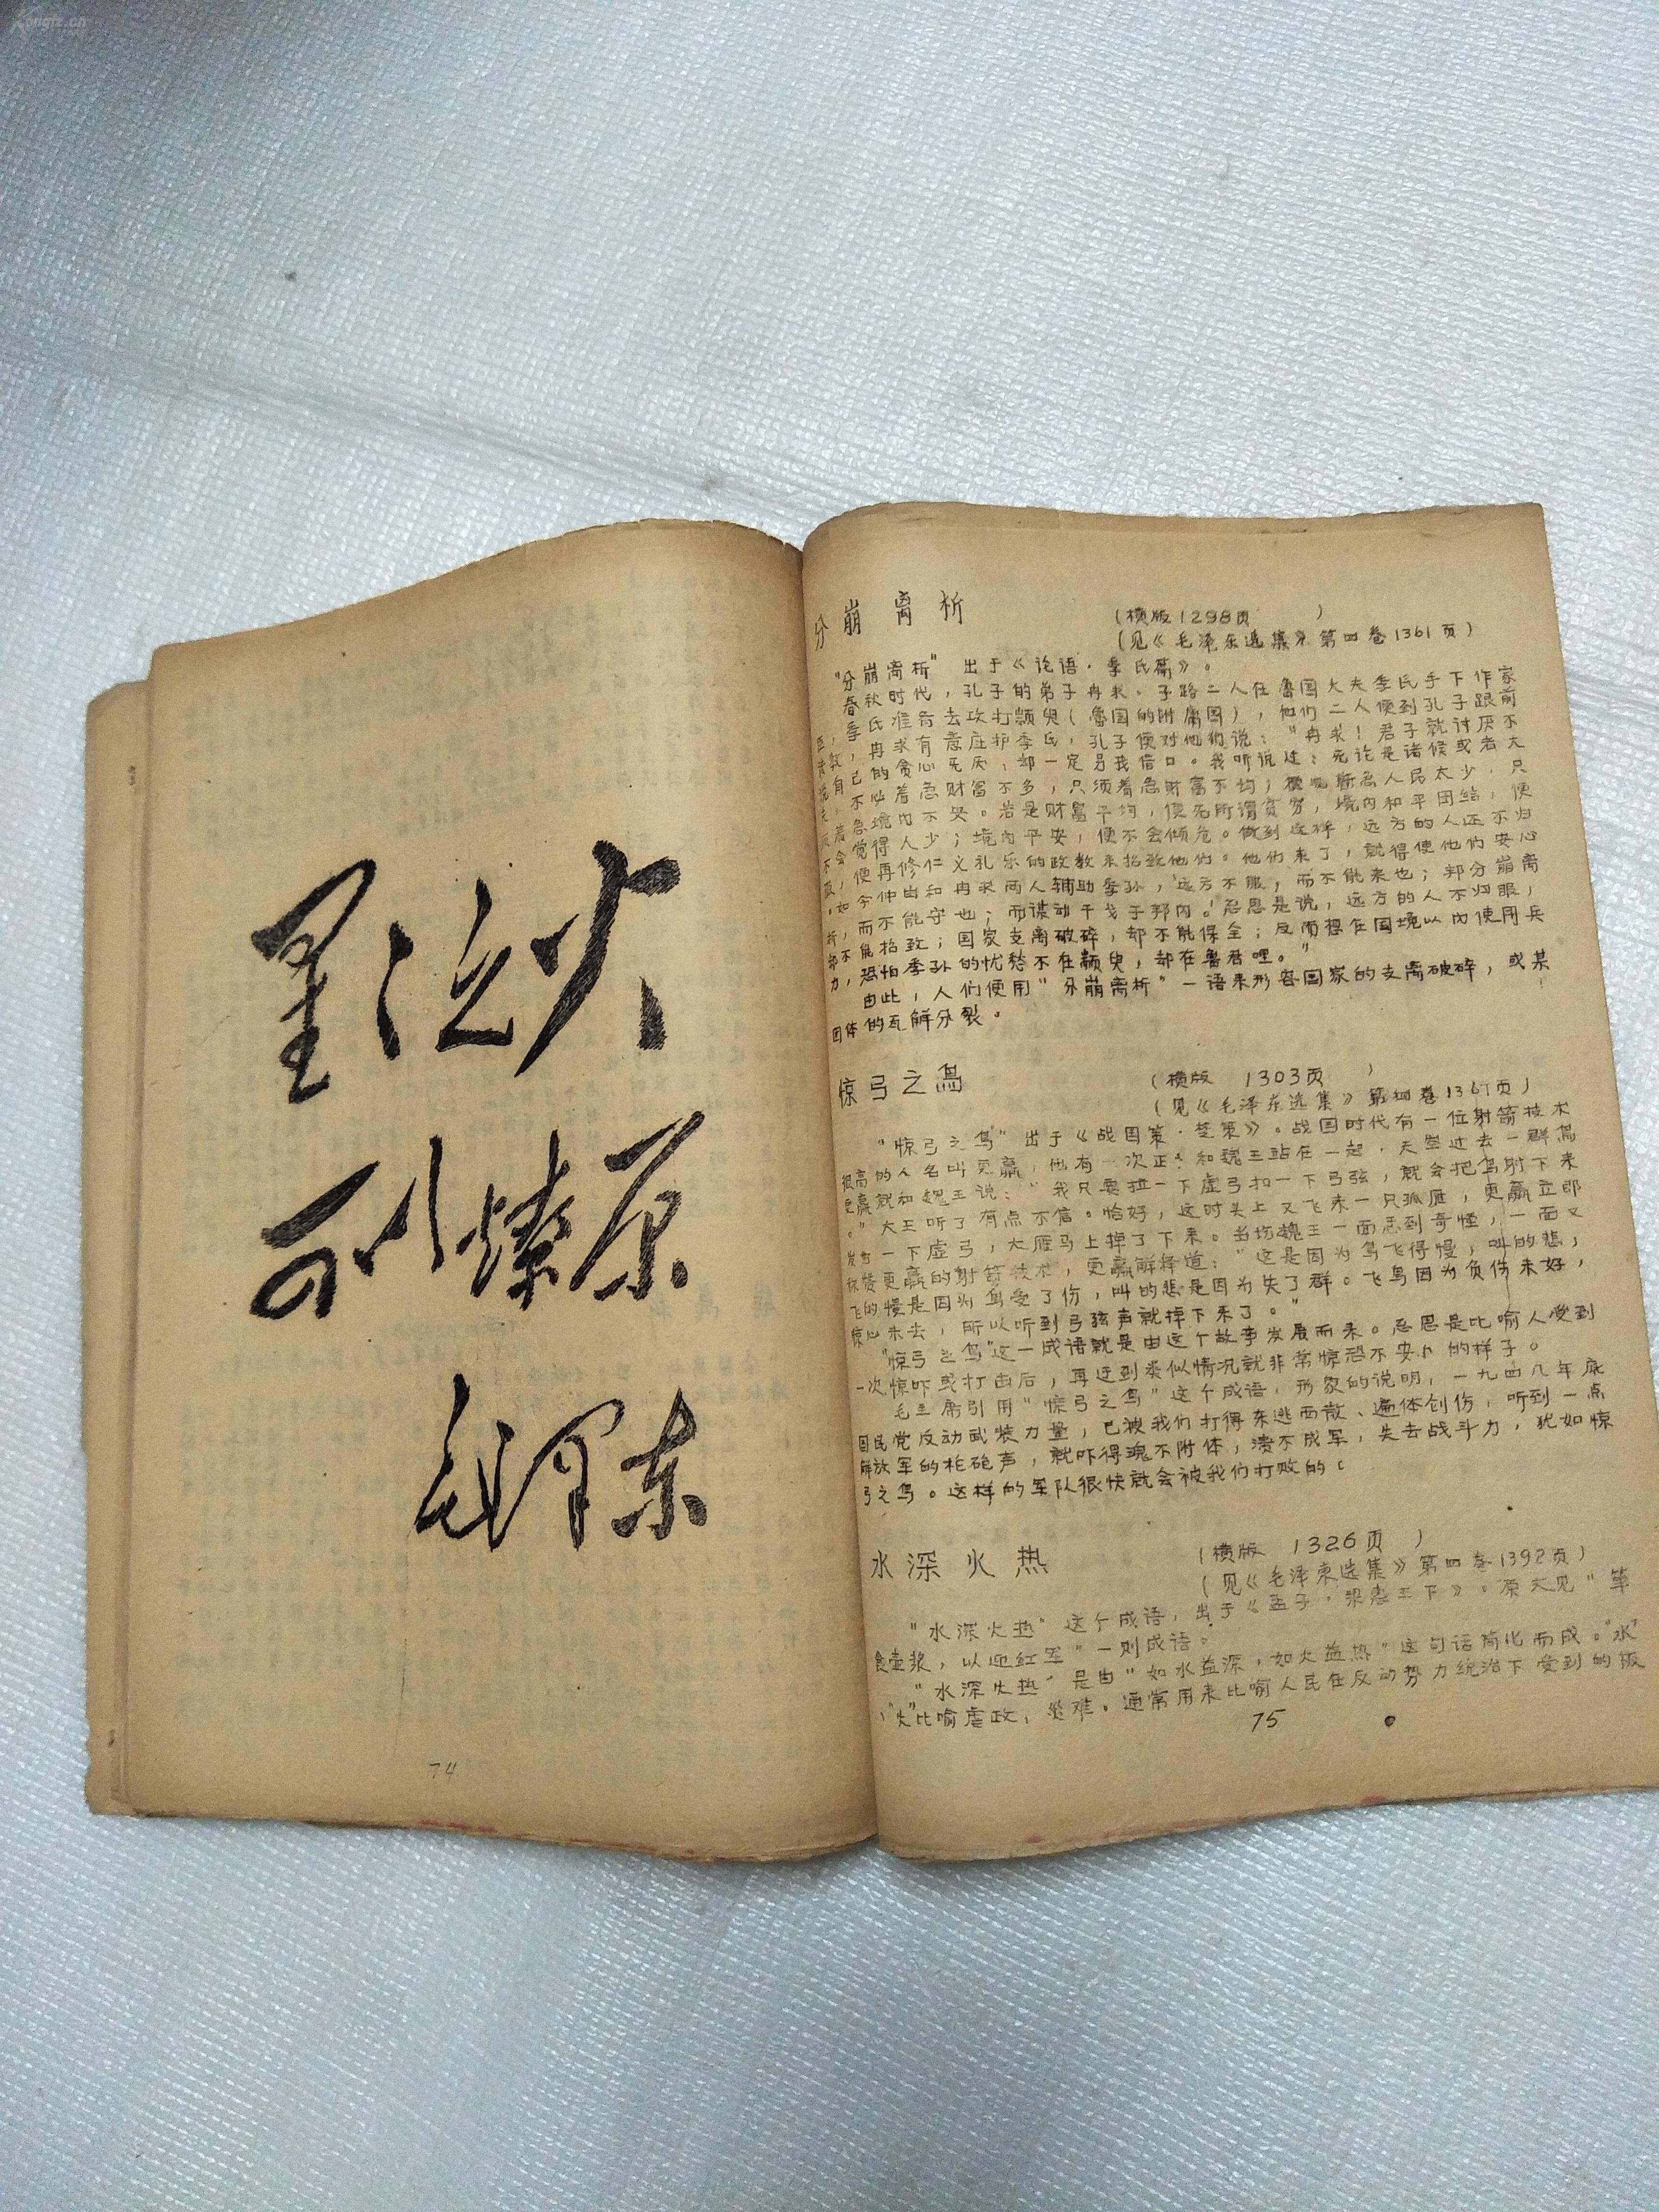 Kongfz.cn
星星之火
可以燎原
毛泽东
74
分崩离析
(横版1298页 )
(见《毛泽东选集》第四卷1361页)
"分崩离析" 出于《论语·季氏篇》。
春秋时代，孔子的弟子冉求、子路二人在鲁国大夫季氏手下作家
季氏准备去攻打颛臾(鲁国的附庸国)，他们二人便到孔子跟前
冉求有意庇护季氏，孔子便对他们说："冉求！君子就讨厌不
己的贪心无厌，却一定另找借口。我听说过：无论是诸候或者大
不必着急财富不多，只须着急财富不均；
急境内不安。若是财富平均，便无所谓贫穷，境内和平团结，便
觉得人少；境内平安，便不会倾危。做到这样，远方的人还不归
便再修仁义礼乐的政教来招致他们。他们来了，就得使他们安心
，如今仲由和冉求两人辅助季孙，远方不服，而不能来也；邦分崩离
析，而不能守也；而谋动干戈于邦内。意思是说，远方的人不归服，
却不能招致；国家支离破碎，却不能保全；反而想在国境以内使用兵
力，恐怕季孙的忧愁不在颛臾，却在鲁君哩。"
由此，人们便用"分崩离析"一语来形容国家的支离破碎，或某
团体的瓦解分裂。
惊弓之鸟
(横版 1303页 )
(见《毛泽东选集》第四卷1367页)
"惊弓之鸟"出于《战国策·楚策》。战国时代有一位射箭技术
很高的人名叫更羸，他有一次正和魏王站在一起，天空过去一群鸟
更羸就和魏王说："我只要拉一下虚弓扣一下弓弦，就会把鸟射下来
。"大王听了有点不信。恰好，这时头上又飞来一只孤雁，更羸立即
发出一下虚弓，大雁马上掉了下来。当场魏王一面感到奇怪，一面又
称赞更羸的射箭技术，更羸解释道："这是因为鸟飞得慢，叫的悲，
飞的慢是因为鸟受了伤，叫的悲是因为失了群。飞鸟因为负伤未好，
惊心未去，所以听到弓弦声就掉下来了。"
"惊弓之鸟"这一成语就是由这个故事发展而来。意思是比喻人受到
一次惊吓或打击后，再迂到类似情况就非常惊恐不安的样子。
毛主席引用"惊弓之鸟"这个成语，形象的说明，一九四八年底
国民党反动武装力量，已被我们打得东逃西散、遍体创伤，听到一点
解放军的枪砲声，就吓得魂不附体，溃不成军，失去战斗力，犹如惊
弓之鸟。这样的军队很快就会被我们打败的。
水深火热
(横版 1326页 )
(见《毛泽东选集》第四卷1392页)
"水深火热"这个成语，出于《孟子·梁惠王下》。原文见"箪
食壶浆，以迎红军"一则成语。
"水深火热"是由"如水益深，如火益热"这句话简化而成。"水"
、"火"比喻虐政，灾难。通常用来比喻人民在反动势力统治下受到的
75